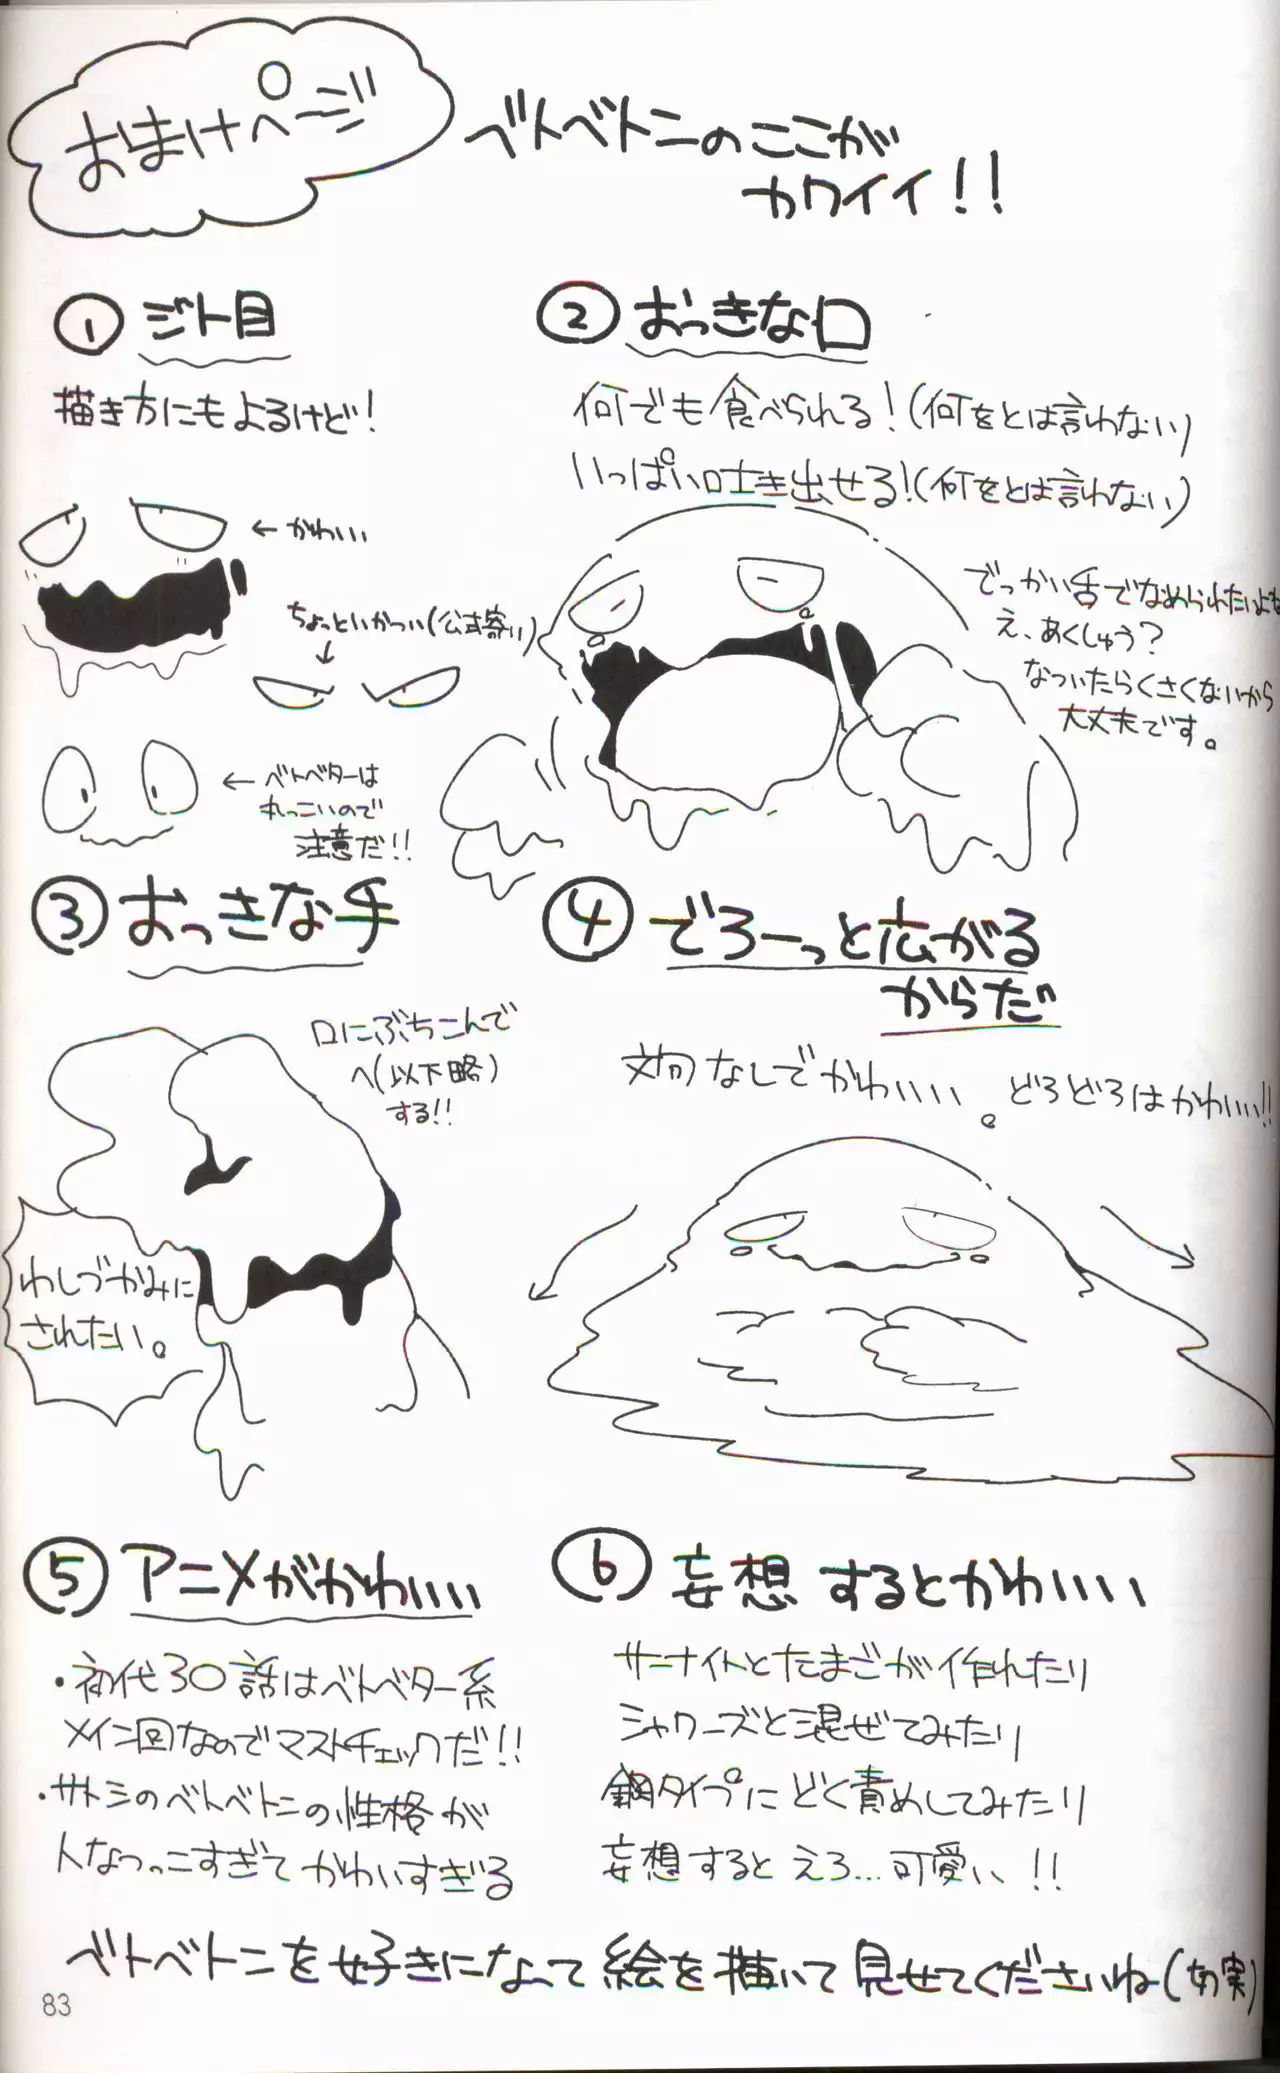 おまけページ
ベトベトンのここが
カワイイ!!
① ジト目
描き方にもよるけど!
← かわいい
ちょっといかつい(公式寄り)
← ベトベターは
丸っこいので
注意だ!!
② おっきな口
何でも食べられる!(何をとは言わない)
いっぱい吐き出せる!(何をとは言わない)
でっかい舌でなめられたいよな
え、あくしゅう?
なついたらくさくないから
大丈夫です。
③ おっきな手
口にぶちこんで
へ(以下略)
する!!
わしづかみに
されたい。
④ でろーっと広がる
からだ
文句なしでかわいい。どろどろはかわいい!!
⑤ アニメがかわいい
・初代30話はベトベター系
メイン回なのでマストチェックだ!!
・サトシのベトベトンの性格が
人なつっこすぎてかわいすぎる
⑥ 妄想するとかわいい
サーナイトとたまごが作れたり
シャワーズと混ぜてみたり
鋼タイプにどく責めしてみたり
妄想するとえろ...可愛い!!
ベトベトンを好きになって絵を描いて見せてくださいね(切実)
83